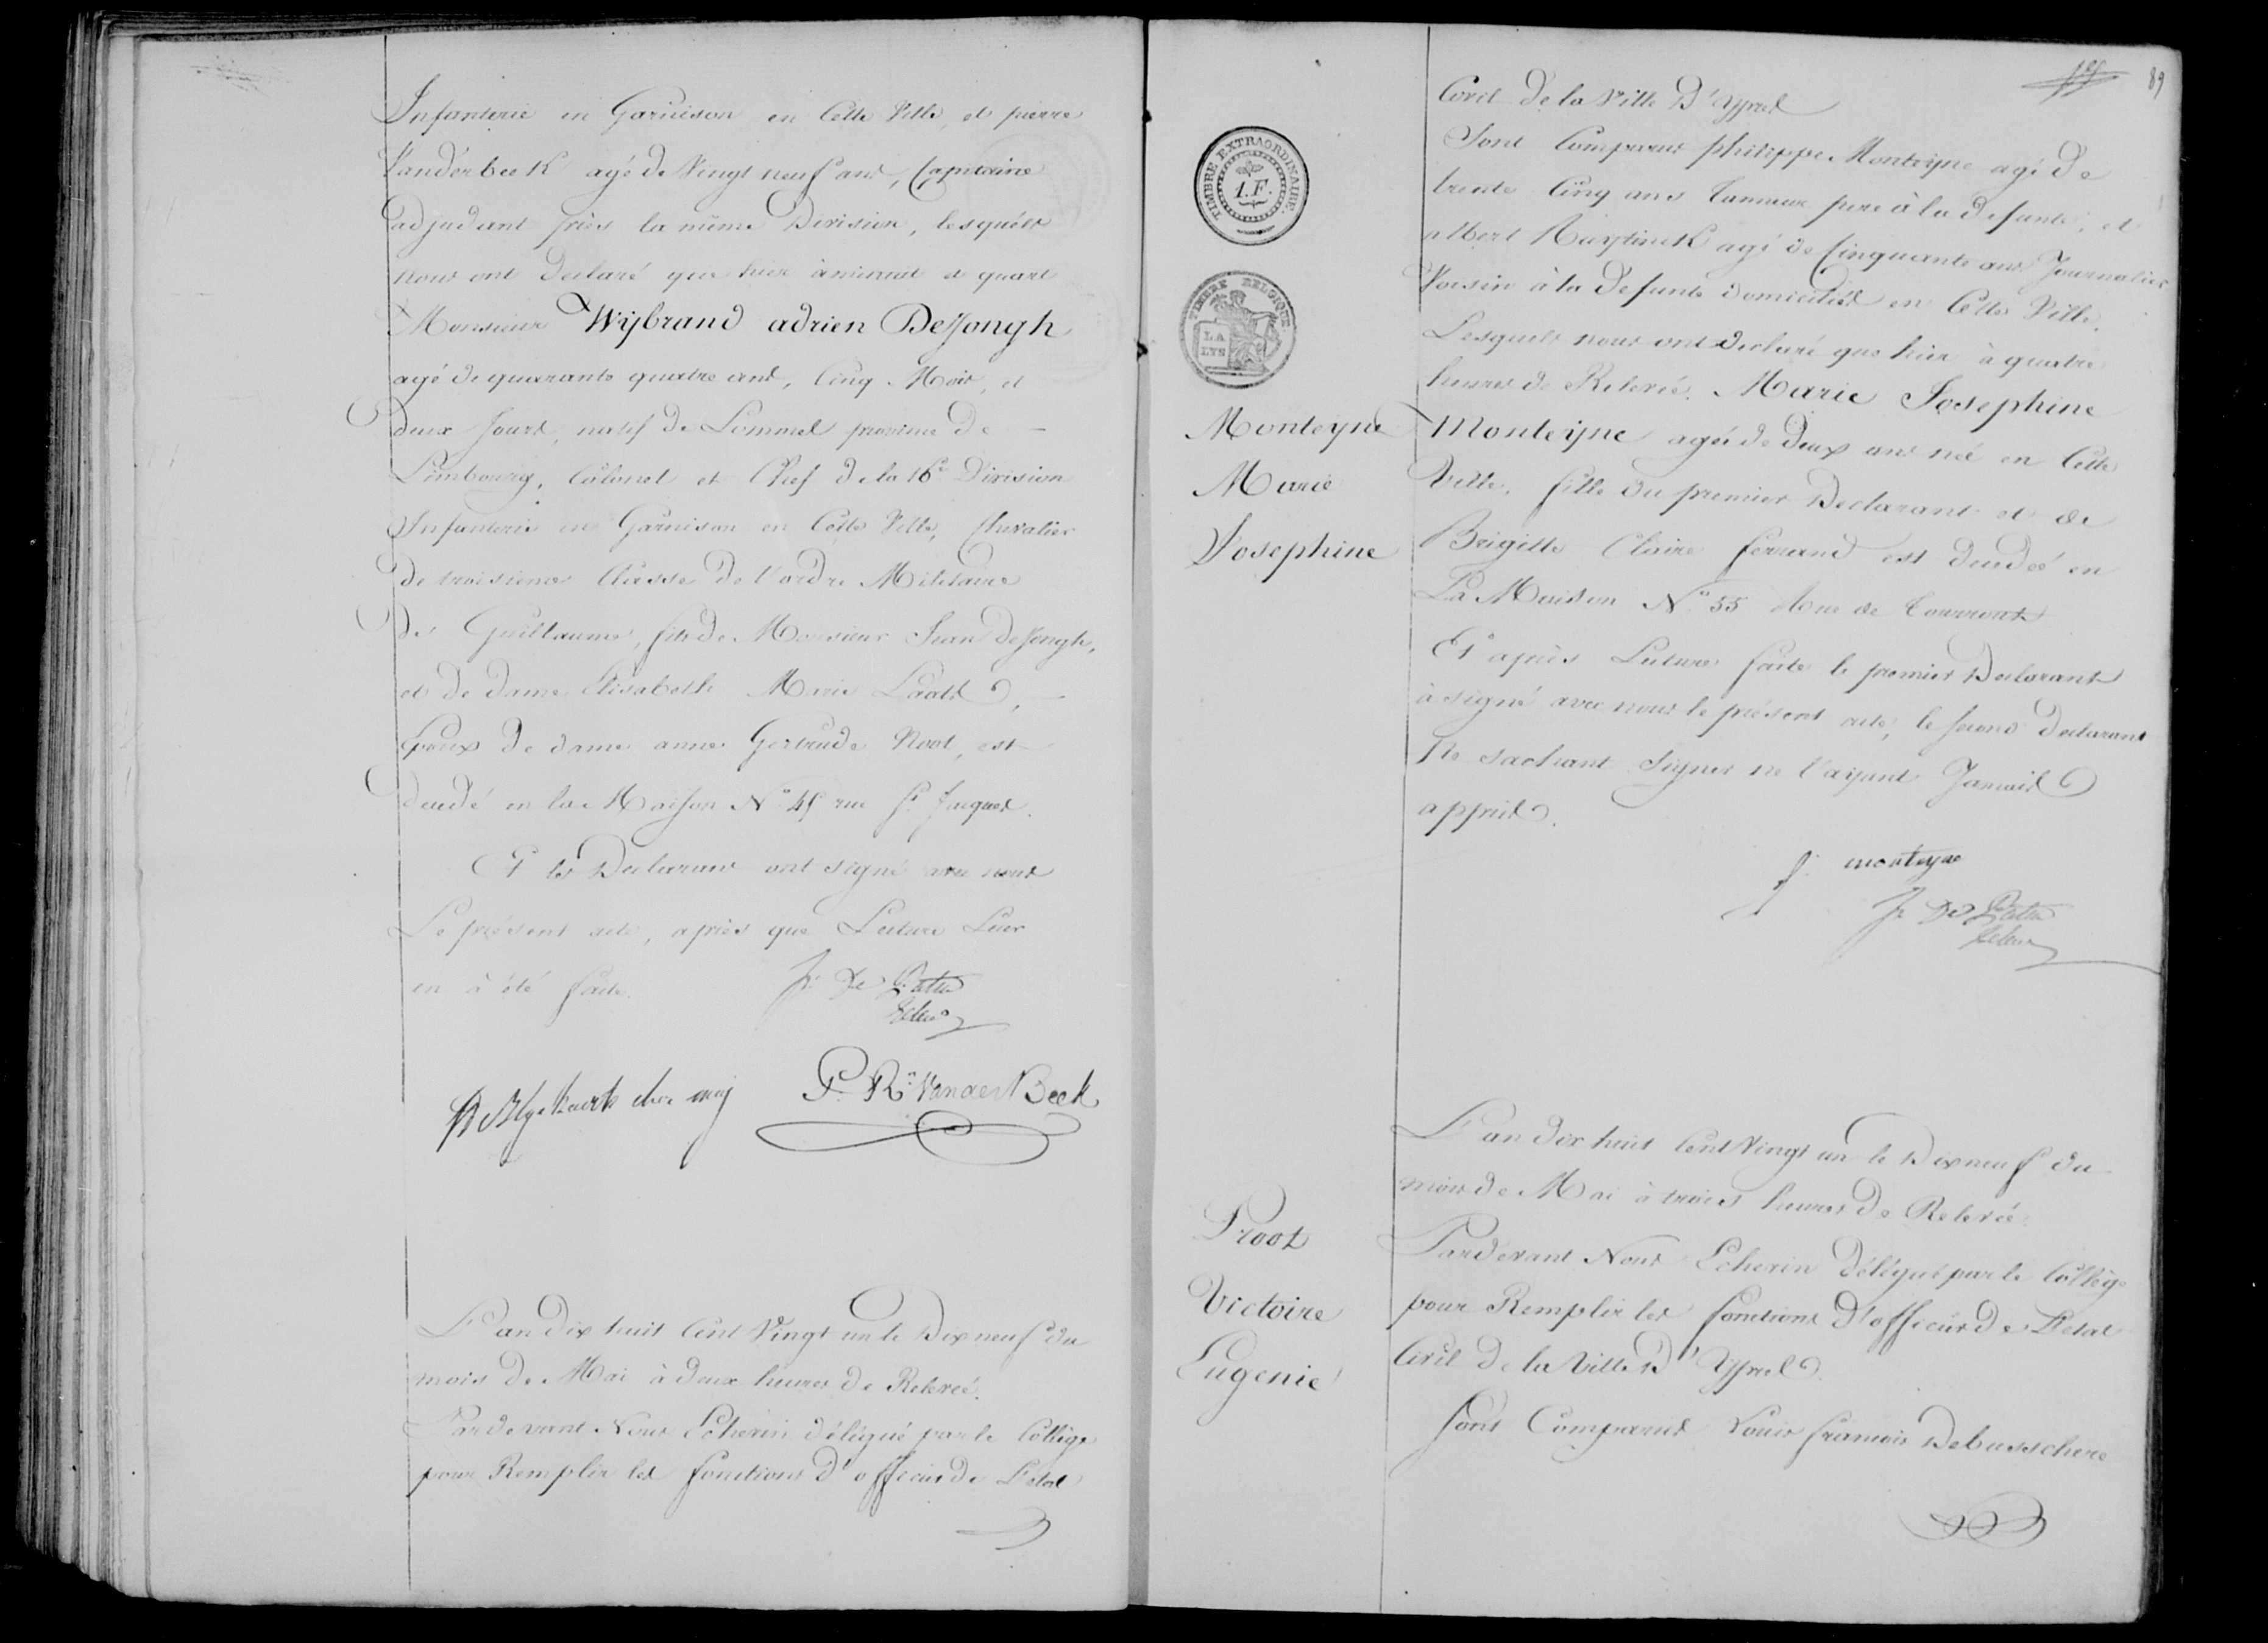 Infanterie en Garnison en Cette Ville, et pierre
Vanderbeek agé de Vingt neuf ans, Capitaine
adjudant près la même Division, lesquels
nous ont declaré que hier à minuit et quart
Monsieur Wijbrand adrien DeJongh
agé de quarante quatre ans, Cinq Mois, et
deux Jours, natif de Lommel province de
Limbourg, Colonel et Chef de la 16e Division
Infanterie en Garnison en Cette Ville, Chevalier
de troisieme Classe de l'ordre Militaire
de Guillaume, fils de Monsieur Jean deJongh,
et de dame Elisabeth Marie
Epoux de dame anne Gertrude Noot, est
decedé en la Maison No 45 rue St Jacques.
Et les Declarans ont signé avec nous
Le présent acte, après que Lecture Leur
en à été faite.
P. R. VanderBeek
L'an dix huit Cent Vingt un le Dix neuf du
mois de Mai à deux heures de Relevée.
Pardevant Nous Echevin délégué par le Collège
pour Remplir les fonctions d'officier de L'etat
89
TIMBRE EXTRAORDINAIRE.
1.F.
TIMBRE BELGIQUE
LA LYS
Monteyne
Marie
Josephine
Civil de la Ville D'Ypres
Sont Comparus philippe Monteyne agé de
trente Cinq ans tanneur pere à la defunte, et
albert agé de Cinquante ans Journalier
Voisin à la defunte domiciliés en Cette Ville.
Lesquels nous ont declaré que hier à quatre
heures de Relevée. Marie Josephine
Monteyne agée de deux ans née en Cette
Ville, fille du premier Declarant et de
Brigitte Claire ferrand est decedée en
La Maison No 55 Rue de Tourrout
Et après Lecture faite le premier Declarant
à signé avec nous le présent acte, le second declarant
Ne sachant signer ne l'ayant Jamais
appris.
monteyne
Proot
Victoire
Eugenie
L'an dix huit Cent Vingt un le Dix neuf du
mois de Mai à trois heures de Relevée.
Pardevant Nous Echevin délégué par le Collège
pour Remplir les fonctions d'officier de L'etat
Civil de la Ville D'Ypres.
Sont Comparus Louis francois Debusschere